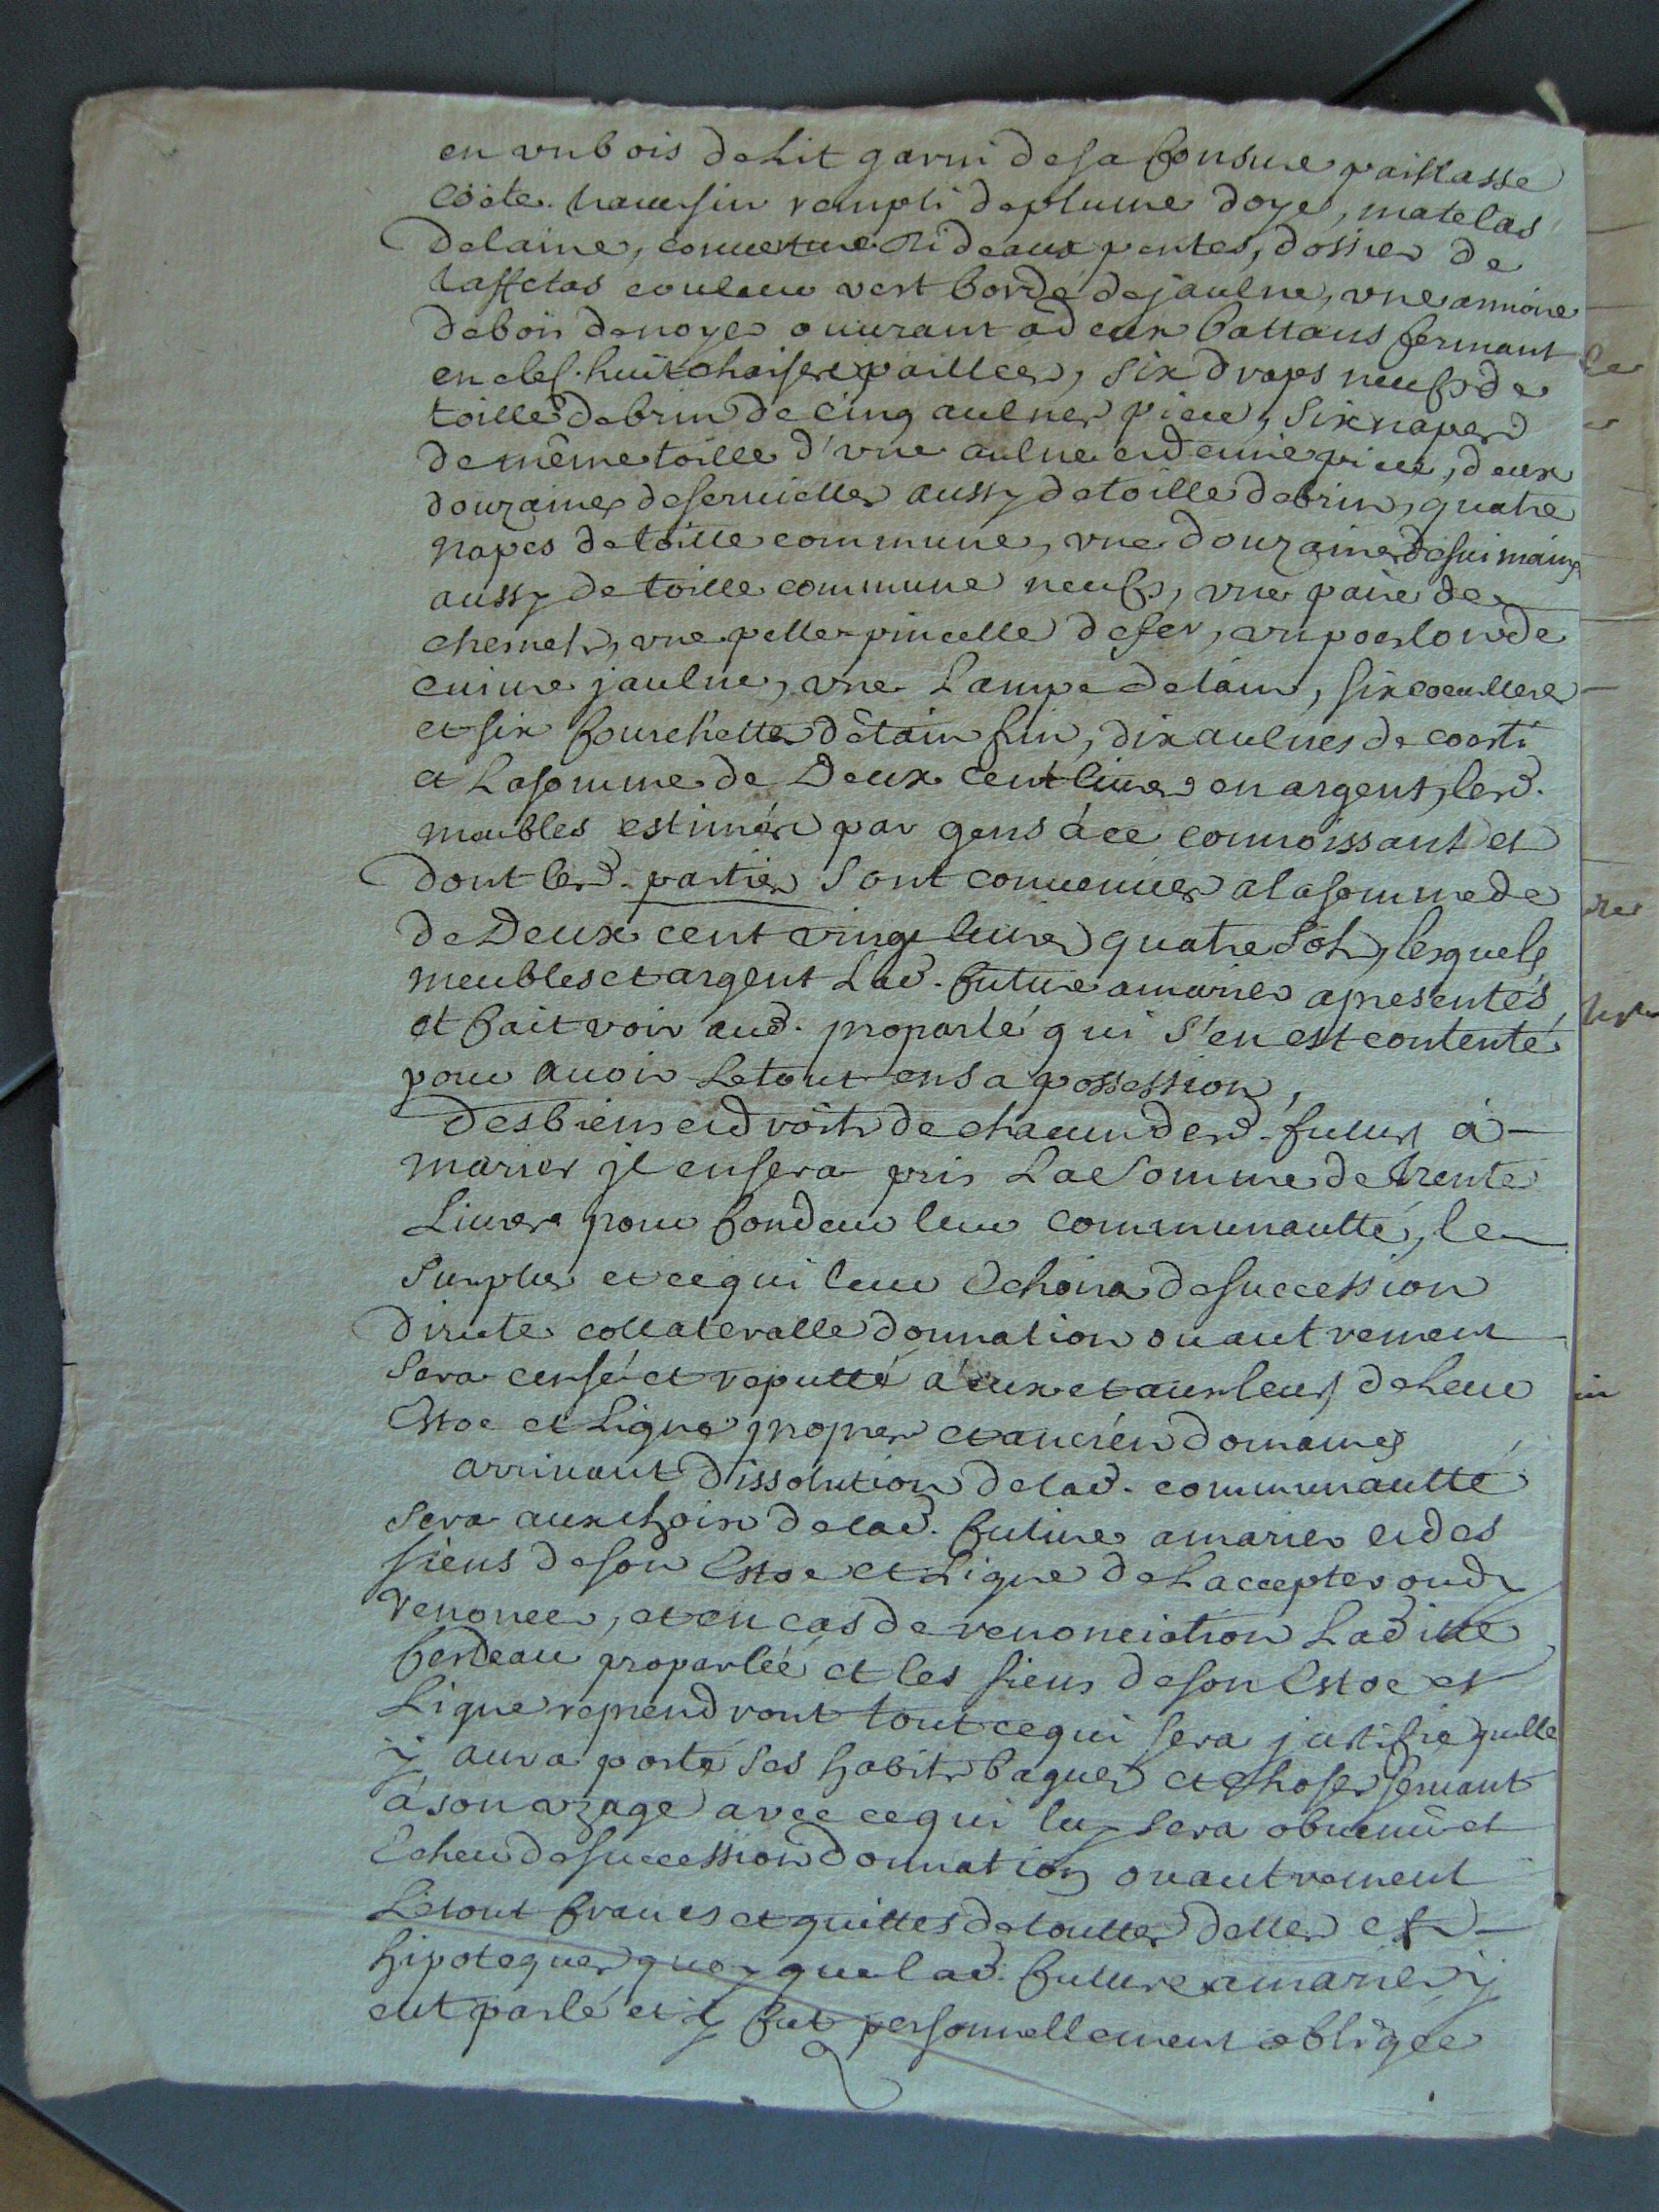 en un bois de Lit garni de sa fonsure paillasse
Coëte. traversin rempli de plume doye, matelas
de laine, couverture Rideaux pentes, dossier de
taffetas couleur vert bordé de jaulne, une armoire
de bois de noyer ouvrant a deux battans fermant
en clef. huit chaises paillées, six draps neufs de
toille de brin de cinq aulnes piece, six napes
de même toille d'une aulne et demie piece, deux
douzaines de serviettes aussy de toille de brin, quatre
napes de toille commune, une douzaine d'esuimains
aussy de toille commune neufs, une paire de
chenets, une pelle pincette de fer, un poeslon de
cuivre jaulne, une Lampe detain, six coeulleres
et six fourchettes d'étain fin, dix aulnes de coesti
et La somme de Deux cent livres en argent, lesd.
meubles estimés par gens à ce connoissant et
dont lesd. parties sont convenues a la somme de
de Deux cent vingt livres quatre sols, lesquels
meubles et argent Lad. future a marier a presentés,
et fait voir aud. proparlé qui s'en est contenté
pour avoir Le tout en sa possession,
Des biens et droits de chacun desd. futurs à
marier jl en sera pris La Somme de trente
Livres pour fonder leur communautté, le
surplus et ce qui leur Echoira de succession
directe collateralle donnation ou autrement
sera censé et reputté à eux et aux leurs de Leur
Estoc et Ligne propres et ancien domaines
arrivant dissolution de lad. communautté
sera aux choix de lad. future a marier et des
siens de son Estoc et Ligne de Laccepter ou dy
renoncer, et en cas de renonciation Laditte
berdeau proparlée et les siens de son Estoc et
Ligne reprendront tout ce qui sera justifié quelle
y aura porté ses habits bagues et choses servant
à son uzage avec ce qui luy sera obvenu et
Echeu de succession donnation ou autrement
Le tout francs et quittes de touttes dettes et
hipoteques quoy que lad. future a marier y
eut parlé et y fut personnellement obligée